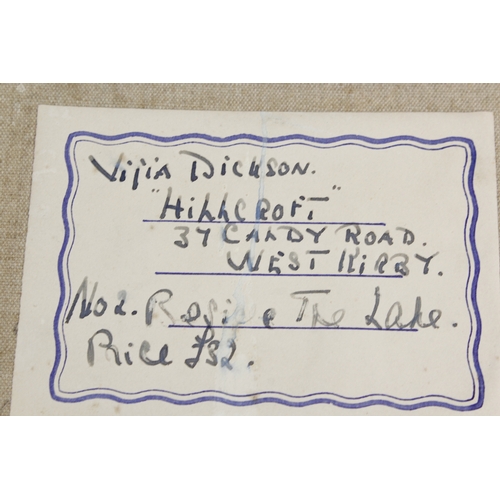 Vijia Dickson.
"Hillcroft"
37 Caldy Road.
West Kirby.
No 2. The Lake.
Price £32.